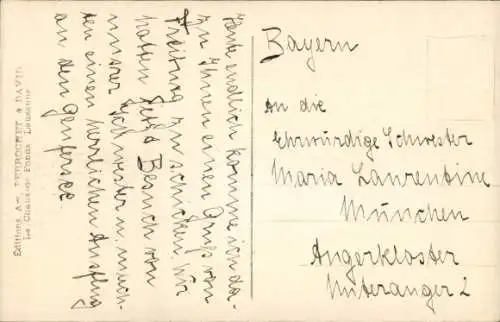 Heute endlich komme ich da-
zu Ihnen einen Gruß von
Freiburg zu schicken, wir
hatten jetzt Besuch von
unsrer Schwester u. mach-
ten einen herrlichen Ausflug
an den Genfersee.
Bayern
An die
Ehrwürdige Schwester
Maria Laurentine
München
Angerkloster
Unteranger 2
Editions Art. PERROCHET & DAVID
La Chaux-de-Fonds Lausanne